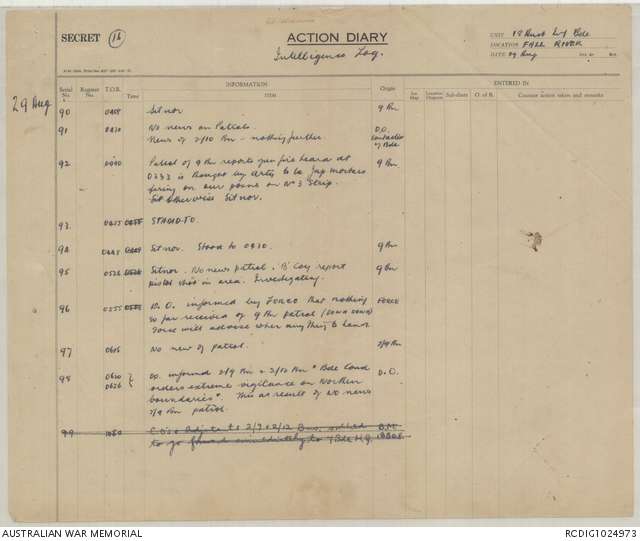 SECRET 16
ACTION DIARY
Intelligence Log.
UNIT 18 Aust Inf Bde
LOCATION FALL RIVER
DATE 29 Aug
INFORMATION
ENTERED IN
Serial No.
Register No.
T.O.R.
Time
ITEM
Origin
Sit Map
Location Diagram
Sub-diary
O. of B.
Counter action taken and remarks
29 Aug
90 Sitnor 9 Bn
91 No news on Patrols. D.O.
News of 2/10 Bn - nothing further
of Bde
92 Patrol of 9 Bn reports gun fire heard at 9 Bn
0233 is thought by Arty to be Jap mortars
firing on our posns on No 3 Strip.
Sit otherwise Sitnor.
93 0455 STAND-TO.
94 Sitnor. Stood to 0430. 9 Bn
95 Sitnor. No news patrol. 'B' Coy report 9 Bn
pistol shots in area. Investigating.
96 D.O. informed by FORCE that nothing FORCE
so far received of 9 Bn patrol
Force will advise when anything to hand
97 0605 No news of patrol. 2/9 Bn
98 0620 DO. informed 2/9 Bn & 2/12 Bn "Bde Comd D.O.
0626 orders extreme vigilance on Northern
boundaries". This as result of no news
2/9 Bn patrol.
99 C.Os & Adjts to 2/9 & 2/12 Bns. B.M.
to go forward immediately to 7 Bde H.Q. 18 Bde
AUSTRALIAN WAR MEMORIAL
RCDIG1024973